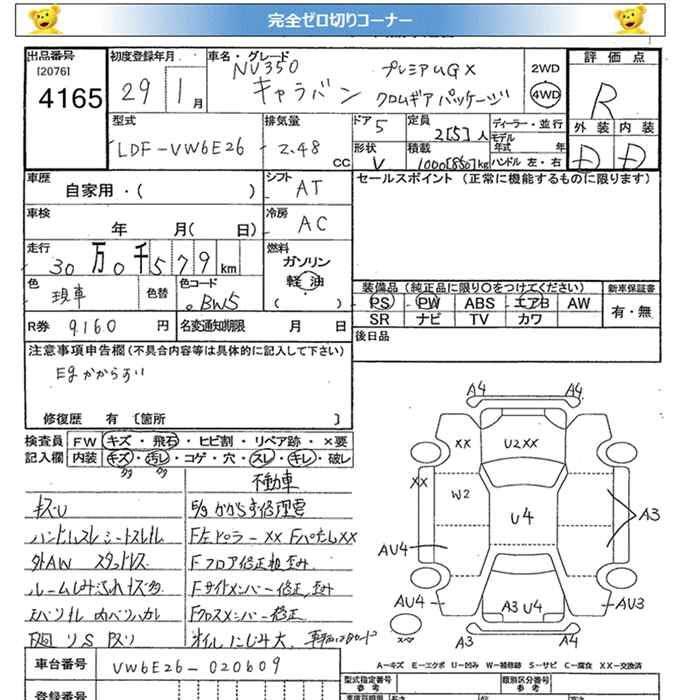 完全ゼロ切りコーナー
出品番号 初度登録年月 車名・グレード 評価点
[2076]
4165 29 1月 NV350 プレミアムGX
キャラバン クロムギアパッケージ
2WD
4WD
R
型式 排気量 ドア 定員 ディーラー・並行 外装 内装
LDF-VW6E26 2.48 CC 5 2[5]人 モデル年式 年
D D
形状 積載 ハンドル 左・右
V 1000[850]kg
車歴 シフト セールスポイント (正常に機能するものに限ります)
自家用・( ) AT
車検 冷房
年 月( 日) AC
走行 燃料
30万0千579km ガソリン
軽油
( )
色 色替 色コード 装備品(純正品に限り○をつけてください) 新車保証書
現車 BW5 PS PW ABS エアB AW 有・無
SR ナビ TV カワ
R券 9160円 名変通知期限 月 日
後日品
注意事項申告欄(不具合内容等は具体的に記入して下さい)
Egかからない
修復歴 有 〔箇所 〕
検査員 FW キズ・飛石・ヒビ割・リペア跡・×要
記入欄 内装 キズ・汚レ・コゲ・穴・スレ・キレ・破レ
不動車
キズU E/gかからず修理要
ハンドルスレ シートスレ F左ピラーXX
外AW スタッドレス Fフロア修正粗歪み
Fサイドメンバー修正、歪み
Fクロスメンバー修正
オイルにじみ大
車台番号 VW6E26-020609
登録番号
A4 A4
XX U2XX
XX
W2 U4 A3
AU4
AU4 A3U4 AU3
スペア
A3 A4
A-キズ E-エクボ U-凹み W-補修跡 S-サビ C-腐食 XX-交換済
型式指定番号 参考 類別区分番号 参考